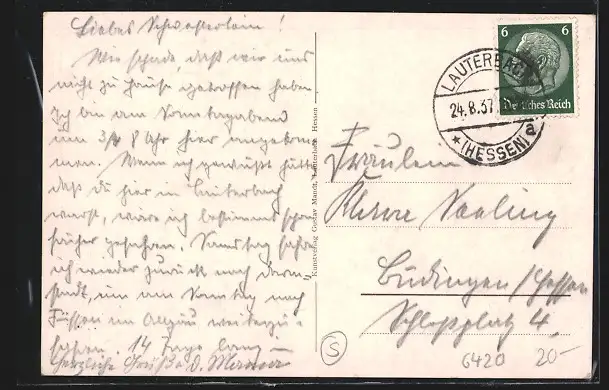 Liebes Schwesterlein!
Wie schade, daß wir uns
nicht zu Hause getroffen haben
Ich bin am Sonntagabend
um 3/4 8 Uhr hier angekom-
men. Wenn ich gewußt hätte
daß du hier in Lauterbach
warst, wäre ich bestimmt schon
früher gefahren. Samstag fahre
ich wieder zurück nach Darm-
stadt, um am Sonntag nach
Füssen im Allgäu weiterzu-
fahren. 14 Tage lang —
Herzliche Grüße
Kunstverlag Gustav Mandt, Lauterbach, Hessen
6 6
Deutsches Reich
LAUTERBACH
24.8.37
a
(HESSEN)
Fräulein
Büdingen / Hessen
Schloßplatz 4.
S
6420 20-